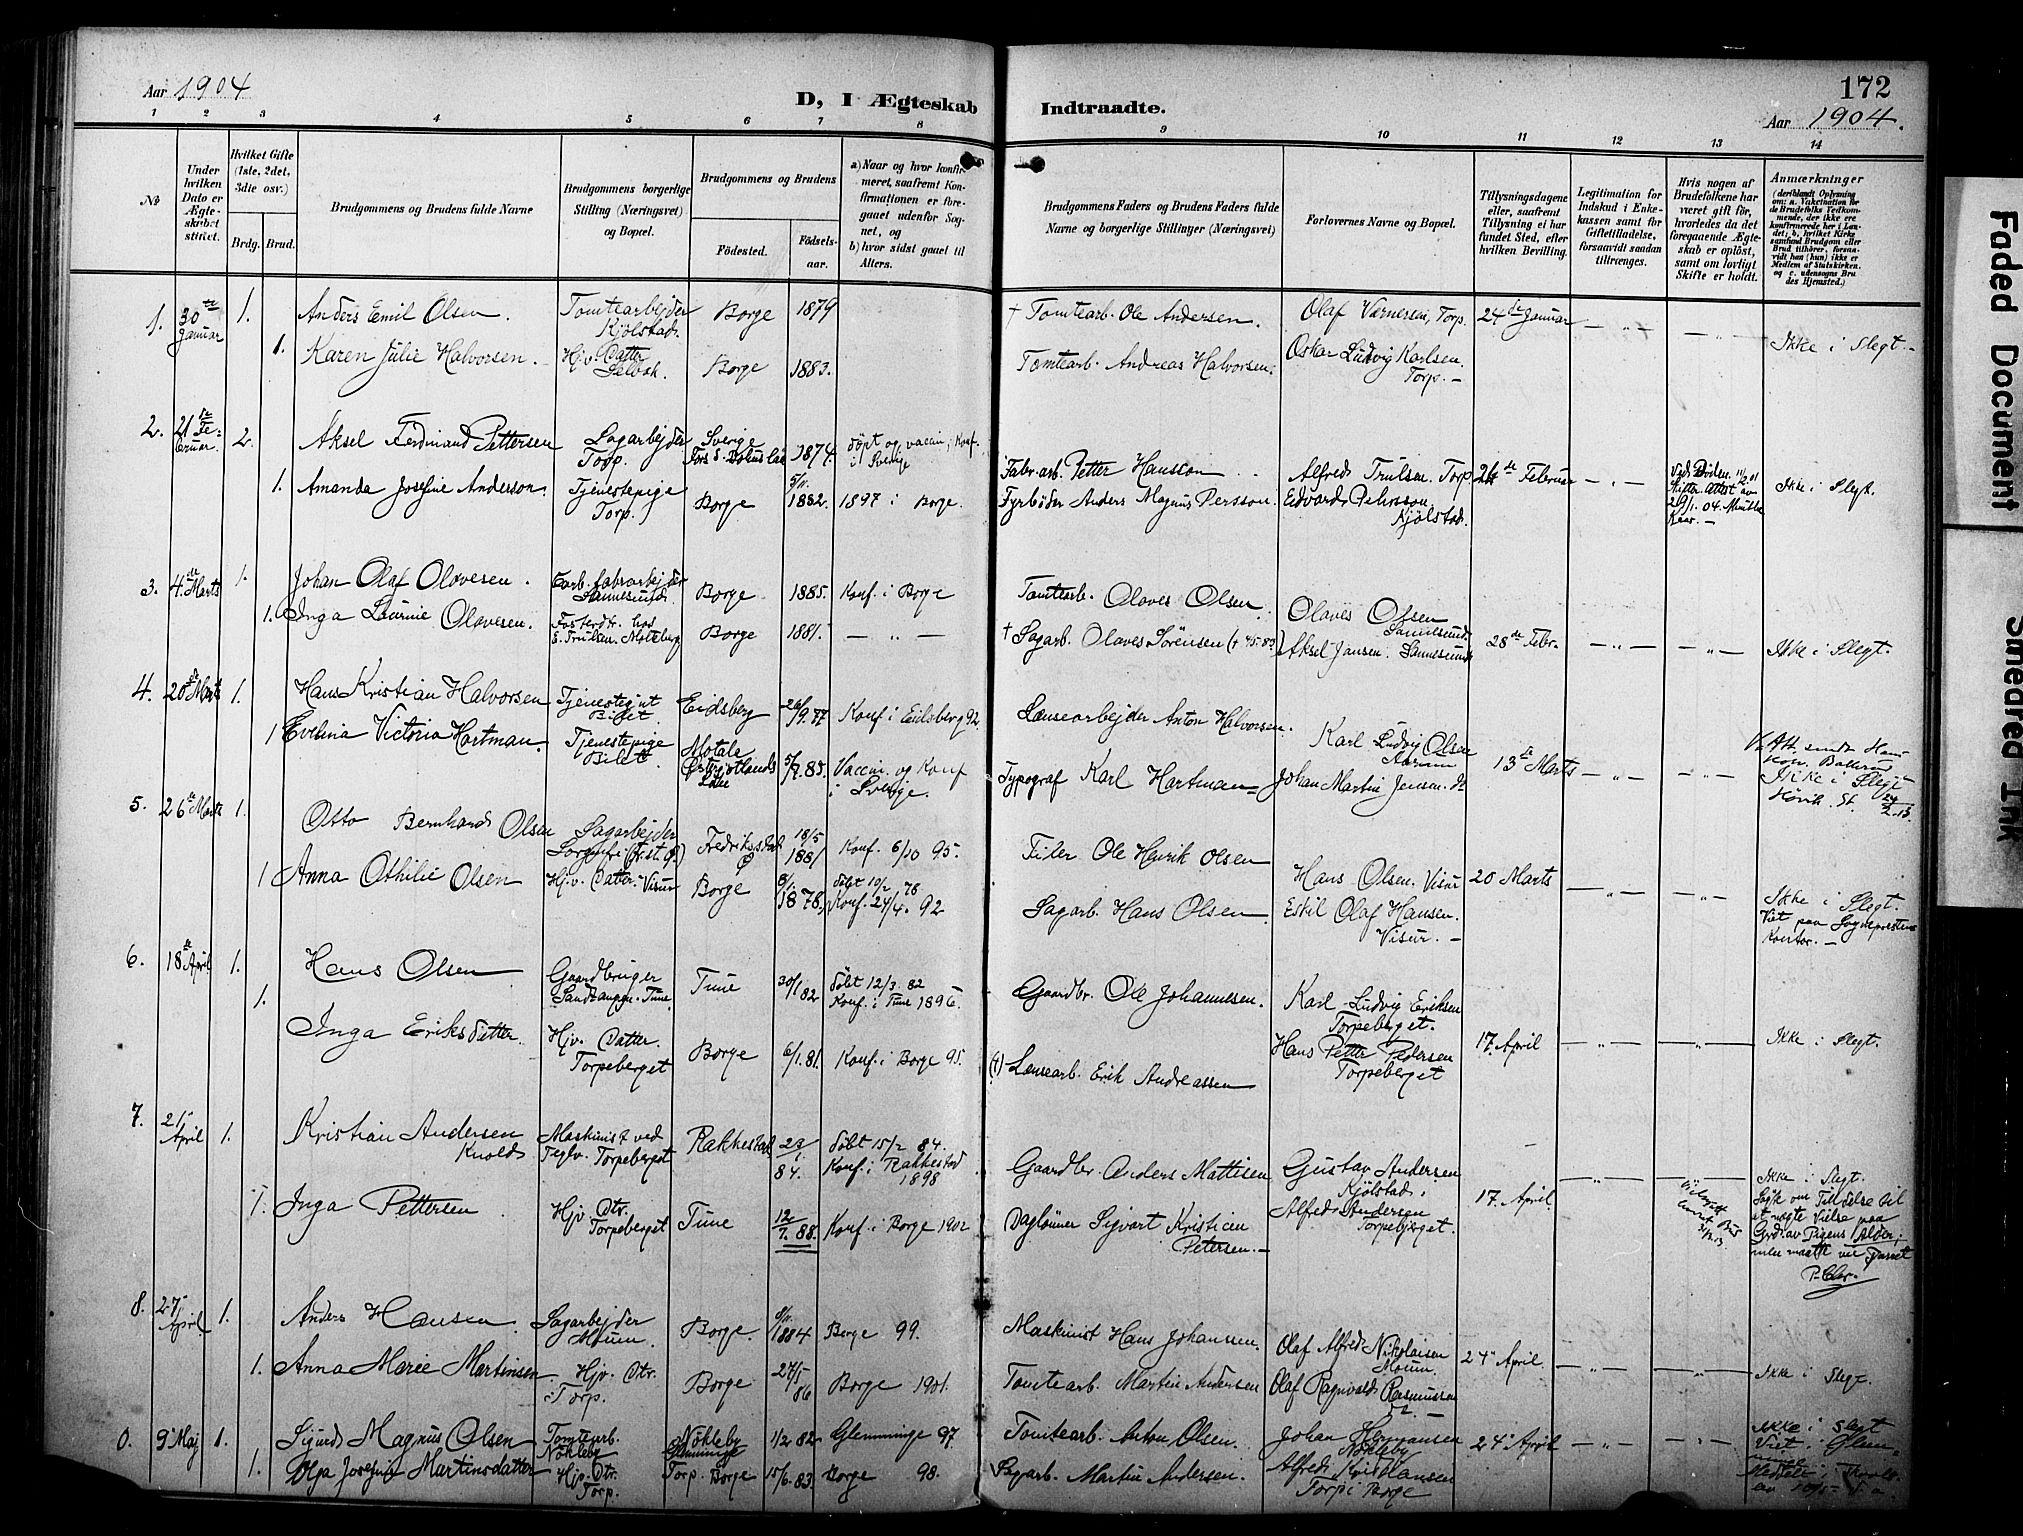 Aar 1904
D, I Ægteskab
Indtraadte.
172
Aar 1904.
1 2 3 4 5 6 7 8 9 10 11 12 13 14
No
Under hvilken Dato er Ægteskabet stiftet.
Hvilket Gifte (1ste, 2det, 3die osv.)
Brdg. Brud.
Brudgommens og Brudens fulde Navne
Brudgommens borgerlige Stilling (Næringsvei) og Bopæl.
Brudgommens og Brudens
Fødested.
Fødselsaar.
a) Naar og hvor konfirmeret, saafremt Konfirmationen er foregaaet udenfor Sognet, og
b) hvor sidst gaaet til Alters.
Brudgommens Faders og Brudens Faders fulde Navne og borgerlige Stillinger (Næringsvei)
Forlovernes Navne og Bopæl.
Tillysningsdagene eller, saafremt Tillysning ei har fundet Sted, efter hvilken Bevilling.
Legitimation for Indskud i Enkekassen samt for Giftetilladelse, forsaavidt saadan tiltrænges.
Hvis nogen af Brudefolkene har været gift før, hvorledes da det foregaaende Ægteskab er opløst, samt om lovligt Skifte er holdt.
Anmærkninger
(deriblandt Oplysning om: a. Vakcination for de Brudefolks Vedkommende, der ikke ere konfirmerede her i Landet; b. hvilket Kirkesamfund Brudgom eller Brud tilhører, forsaavidt han (hun) ikke er Medlem af Statskirken, og c. udensogns Brudes Hjemsted.)
1. 30te Januar 1. Anders Emil Olsen. Tomtearbejder Kjølstad. Borge 1879 † Tomtearb. Ole Andersen. Olaf Værnersen, Torp. 24de Januar
1. Karen Julie Halvorsen. Hjv. Datter Selbak. Borge 1883. Tomtearb. Andreas Halvorsen. Oskar Ludvig Karlsen. Torp. Ikke i Slegt.
2. 21de Februar 2. Aksel Ferdinand Pettersen Sagarbejder Torp. Sverige 1874. Døpt og vaccin., Konf. i Sverige Fabr.arb. Petter Hansson Alfred Trulsen. Torp 21de Februar
1. Amanda Josefine Anderson. Tjenestepige Torp. Borge 5/11 1882. 1897 i Borge. Fyrbøder Anders Magnus Persson. Edvard Pehrsson. Kjølstad. Ikke i Slegt.
3. 4de Marts 1. Johan Olaf Olavesen. Lannesund. Borge 1885. Konf. i Borge Tomtearb. Olaves Olsen. Olaves Olsen Lannesund.
1. Inga Laurine Olavesen. Fosterdtr. hos E. Trulsen. Moteberg Borge 1881. — „ — † Sagarb. Olaves Sørensen Aksel Jansen. Lannesund 28de Febr. Ikke i Slegt.
4. 20de Marts 1. Hans Kristian Halvorsen Tjenestegut Bilet. Eidsberg 26/9.77 Konf. i Eidsberg 92. Lænsearbejder Anton Halvorsen. Karl Ludvig Olsen 13de Marts
1 Evelina Victoria Hartman. Tjenestepige Bilet. Motala Østergøtlands Län 5/9.85. Vaccin. og Konf. i Sverige. Typograf Karl Hartman Johan Martin Jensen. Ikke i Slegt
5. 26de Marts 1. Otto Bernhard Olsen Sagarbejder Fredriksstad 18/5 1881 Konf. 6/10 95. Filer Ole Henrik Olsen Hans Olsen. Visur 20 Marts
1 Anna Othilie Olsen Hjv. Datter. Visur Borge 1878. Døbt 10/2 78 Konf. 24/4. 92 Sagarb. Hans Olsen Eskil Olaf Hansen. Visur. — Ikke i Slegt. Viet paa Sognepræstens Kontor. —
6. 18de April 1. Hans Olsen Gaardbruger Tune 30/1 82 Døbt 12/3. 82 Konf. i Tune 1896 Gaardbr. Ole Johannesen. Karl Ludvig Eriksen Torpeberget.
1. Inga Eriksdatter. Hjv. Datter. Torpeberget Borge 6/1.81. Konf. i Borge 95. (†) Lænsearb. Erik Andreassen Hans Petter Pedersen Torpeberget 17. April Ikke i Slegt.
7. 21 April 1. Kristian Andersen Knold Maskinist ved Teglv. Torpeberget Rakkestad 84. Døbt 15/2 84. Konf. i Rakkestad 1898 Gaardbr. Anders Mattisen Gustav Andersen Kjølstad. 17 April Ikke i Slegt.
1. Inga Pettersen Hjv. Dtr. Torpeberget Tune 12/7. 88. Konf. i Borge 1902 Daglønner Sigvart Kristian Petersen. — Alfred Andersen Torpeberget.
8. 27 April 1. Anders Hansen Sagarbejder Moum. Borge. 8/11 1884 Borge 99. Maskinist Hans Johansen. Olaf Alfred Nikolaisen Moum. 24 April.
1. Anna Marie Martinsen Hjv. Dtr. Torp. Borge 27/5 86 Borge 1901. Tomtearb. Martin Andersen Olaf Ragnvald Rasmussen Ikke i Slegt.
9 Maj 1. Sigurd Magnus Olsen Tomtearb. Nøkleby Nøkleby Glemminge 1/2 82 Glemminge 97. Tomtearb. Anton Olsen. Johan Hermansen Nøkleby 24 April Ikke i Slegt
1. Olga Josefine Martinsdatter Hjv. Dtr. Torp. Torp. Borge 15/6.83. Borge 98. Sagarb. Martin Andersen. Alfred Kristiansen Torp i Borge
Faded Document
Smeared Ink